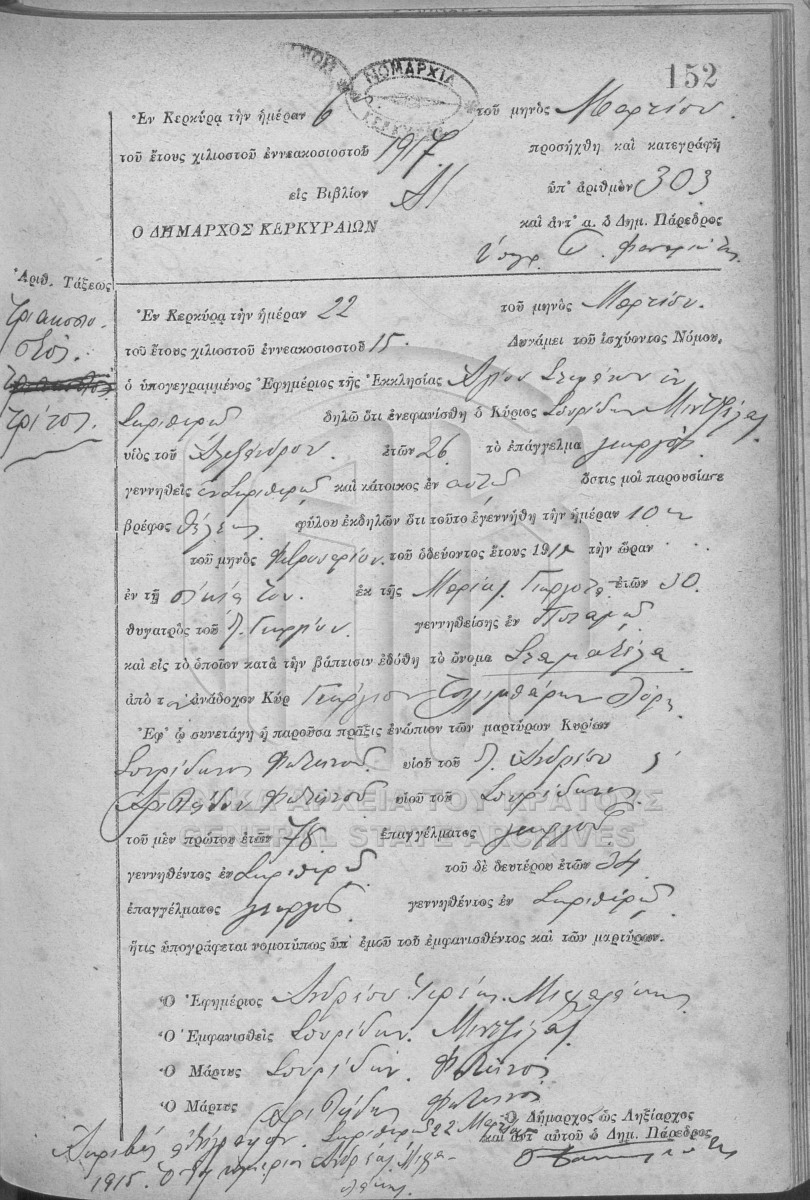 152
ΝΟΜΑΡΧΙΑ
ΚΕΡΚΥΡΑΣ
Ἐν Κερκύρᾳ τὴν ἡμέραν 6 τοῦ μηνὸς Μαρτίου.
τοῦ ἔτους χιλιοστοῦ ἐννεακοσιοστοῦ 1917 προσήχθη καὶ κατεγράφη
εἰς Βιβλίον Α! ὑπ' ἀριθμὸν 303
Ο ΔΗΜΑΡΧΟΣ ΚΕΡΚΥΡΑΙΩΝ καὶ ἀντ' α. ὁ Δημ. Πάρεδρος
Ἀριθ. Τάξεως
Τριακοσιο-
στός.
τρίτος.
Ἐν Κερκύρᾳ τὴν ἡμέραν 22 τοῦ μηνὸς Μαρτίου.
τοῦ ἔτους χιλιοστοῦ ἐννεακοσιοστοῦ 15. Δυνάμει τοῦ ἰσχύοντος Νόμου.
ὁ ὑπογεγραμμένος Ἐφημέριος τῆς Ἐκκλησίας Ἁγίου Στεφάνου ἐν
Σκριπερῷ δηλῶ ὅτι ἐνεφανίσθη ὁ Κύριος Σπυρίδων Μιντζίλας
υἱὸς τοῦ Ἀλεξάνδρου. ἐτῶν 26 τὸ ἐπάγγελμα γεωργός
γεννηθεὶς ἐν Σκριπερῷ καὶ κάτοικος ἐν αὐτῷ ὅστις μοὶ παρουσίασε
βρέφος θήλεος φύλου ἐκδηλῶν ὅτι τοῦτο ἐγεννήθη τὴν ἡμέραν 10
τοῦ μηνὸς Φεβρουαρίου. τοῦ ὁδεύοντος ἔτους 191 τὴν ὥραν
ἐν τῇ οἰκίᾳ του. ἐκ τῆς Μαρίας ἐτῶν 30.
θυγατρὸς τοῦ Γεωργίου. γεννηθείσης ἐν Ποταμῷ
καὶ εἰς τὸ ὁποῖον κατὰ τὴν βάπτισιν ἐδόθη τὸ ὄνομα Σταματέλα
ἀπὸ τὸν ἀνάδοχον Κύρ Γεώργιον
Ἐφ' ᾧ συνετάγη ἡ παροῦσα πρᾶξις ἐνώπιον τῶν μαρτύρων Κυρίων
Σπυρίδωνος Φωτεινοῦ υἱοῦ τοῦ π. Ἀνδρέου
Ἀριστείδου Φωτεινοῦ υἱοῦ τοῦ Σπυρίδωνος
τοῦ μὲν πρώτου ἐτῶν 78 ἐπαγγέλματος γεωργοῦ
γεννηθέντος ἐν Σκριπερῷ τοῦ δὲ δευτέρου ἐτῶν 34
ἐπαγγέλματος γεωργοῦ. γεννηθέντος ἐν Σκριπερῷ
ἥτις ὑπογράφεται νομοτύπως ὑπ' ἐμοῦ τοῦ ἐμφανισθέντος καὶ τῶν μαρτύρων.
Ὁ Ἐφημέριος Ἀνδρέας Ἱερεὺς Μιχαλάκης
Ὁ Ἐμφανισθεὶς Σπυρίδων Μιντζίλας
Ὁ Μάρτυς Σπυρίδων Φωτεινός
Ὁ Μάρτυς Ἀριστείδης Φωτεινός
Ὁ Δήμαρχος ὡς Ληξίαρχος
καὶ ἀντ' αὐτοῦ ὁ Δημ. Πάρεδρος
Ἀκριβὲς ἀντίγραφον. Σκριπερῷ 22 Μαρτίου
1915. Ὁ Ἐφημέριος Ἀνδρέας Μιχα-
λάκης.
ΓΕΝΙΚΑ ΑΡΧΕΙΑ ΤΟΥ ΚΡΑΤΟΥΣ
GENERAL STATE ARCHIVES